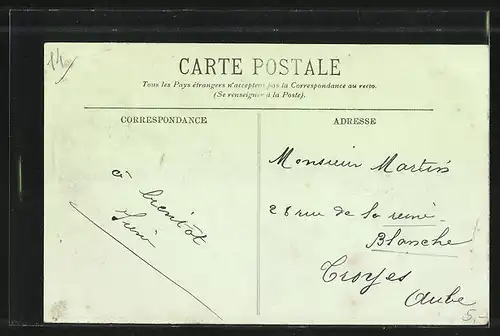 14
CARTE POSTALE
Tous les Pays étrangers n'acceptent pas la Correspondance au recto.
(Se renseigner à la Poste).
CORRESPONDANCE
ADRESSE
à bientôt
Monsieur Martin
28 rue de la reine
Blanche
Troyes
Aube
5.-